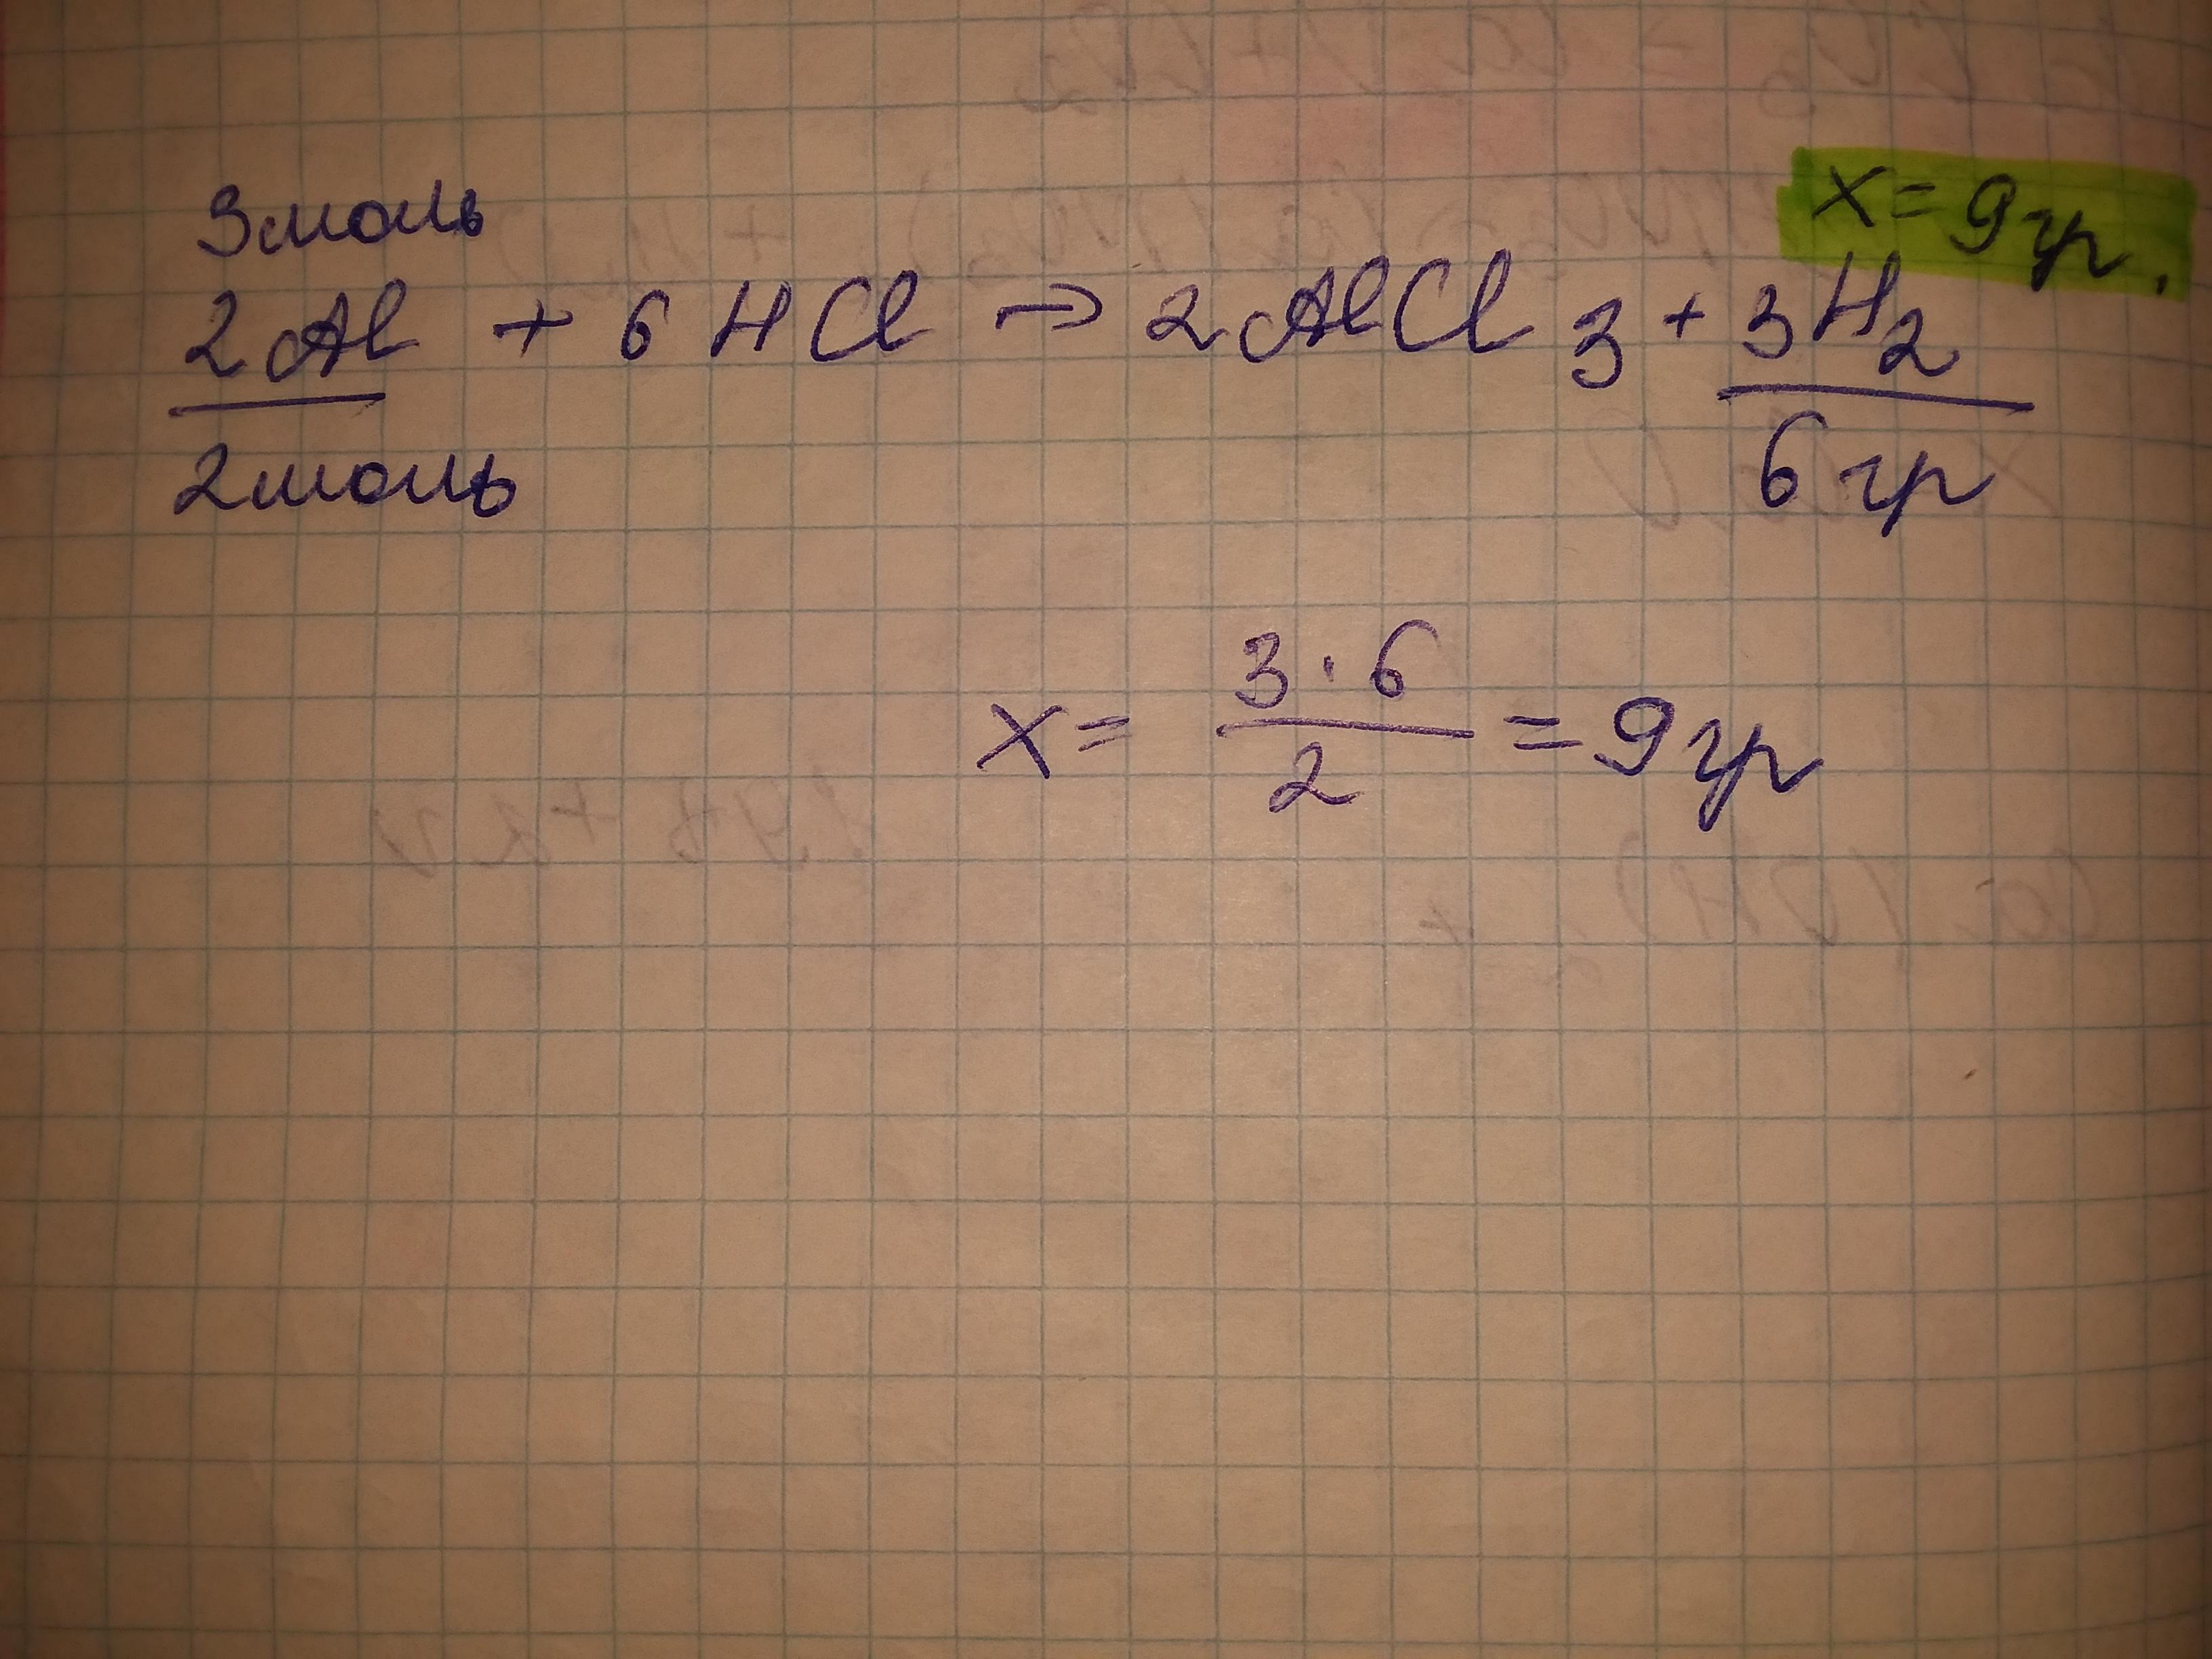 3моль x = 9гр.
2Al + 6HCl → 2AlCl3 + 3H2
2моль 6гр
x = 3·6/2 = 9гр